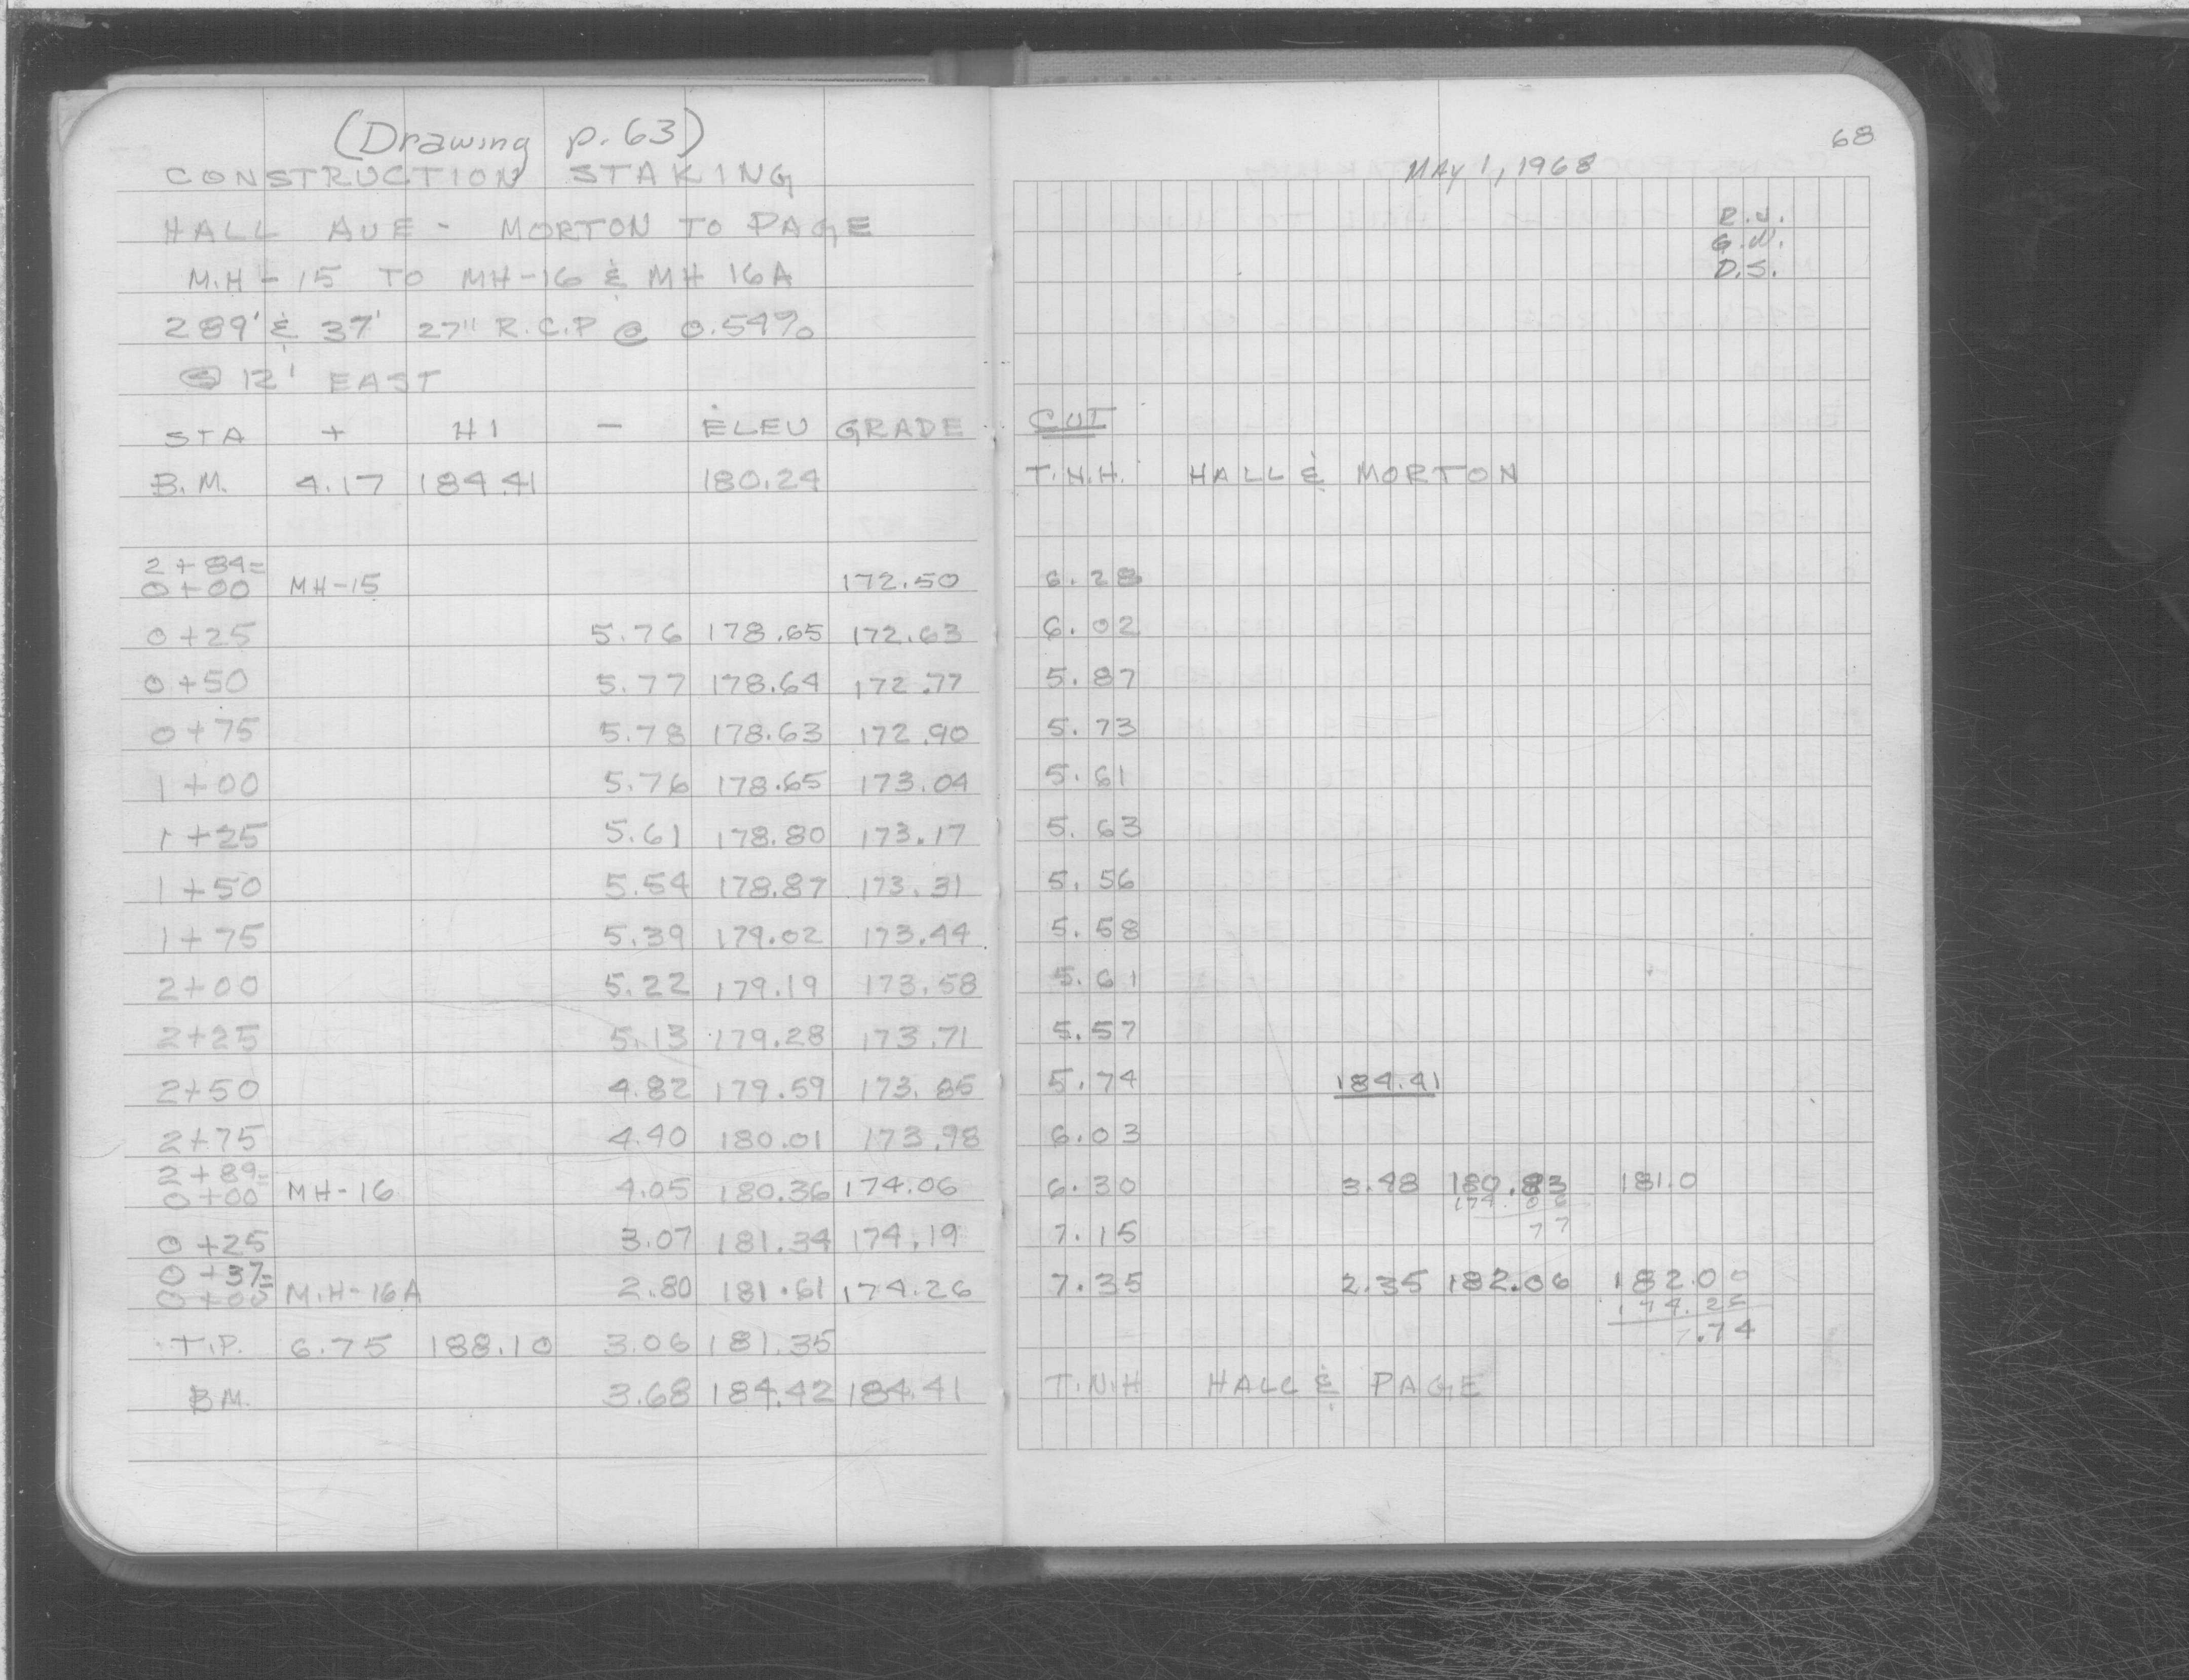 (Drawing p. 63)
CONSTRUCTION STAKING
HALL AVE - MORTON TO PAGE
M.H - 15 TO MH-16 & MH 16A
289' & 37' 27" R.C.P @ 0.54%
12' EAST
STA + HI - ELEV GRADE
B.M. 4.17 184.41 180.24
2+84=
0+00 MH-15 172.50
0+25 5.76 178.65 172.63
0+50 5.77 178.64 172.77
0+75 5.78 178.63 172.90
1+00 5.76 178.65 173.04
1+25 5.61 178.80 173.17
1+50 5.54 178.87 173.31
1+75 5.39 179.02 173.44
2+00 5.22 179.19 173.58
2+25 5.13 179.28 173.71
2+50 4.82 179.59 173.85
2+75 4.40 180.01 173.98
2+89=
0+00 MH-16 4.05 180.36 174.06
0+25 3.07 181.34 174.19
0+37=
0+00 M.H-16A 2.80 181.61 174.26
T.P. 6.75 188.10 3.06 181.35
BM. 3.68 184.42 184.41
68
MAY 1, 1968
R.J.
G.W.
D.S.
CUT
T.N.H. HALL & MORTON
6.28
6.02
5.87
5.73
5.61
5.63
5.56
5.58
5.61
5.57
5.74 184.41
6.03
6.30 3.48 180.83 181.0
174.06
77
7.15
7.35 2.35 182.06 182.00
174.26
7.74
T.N.H HALL & PAGE